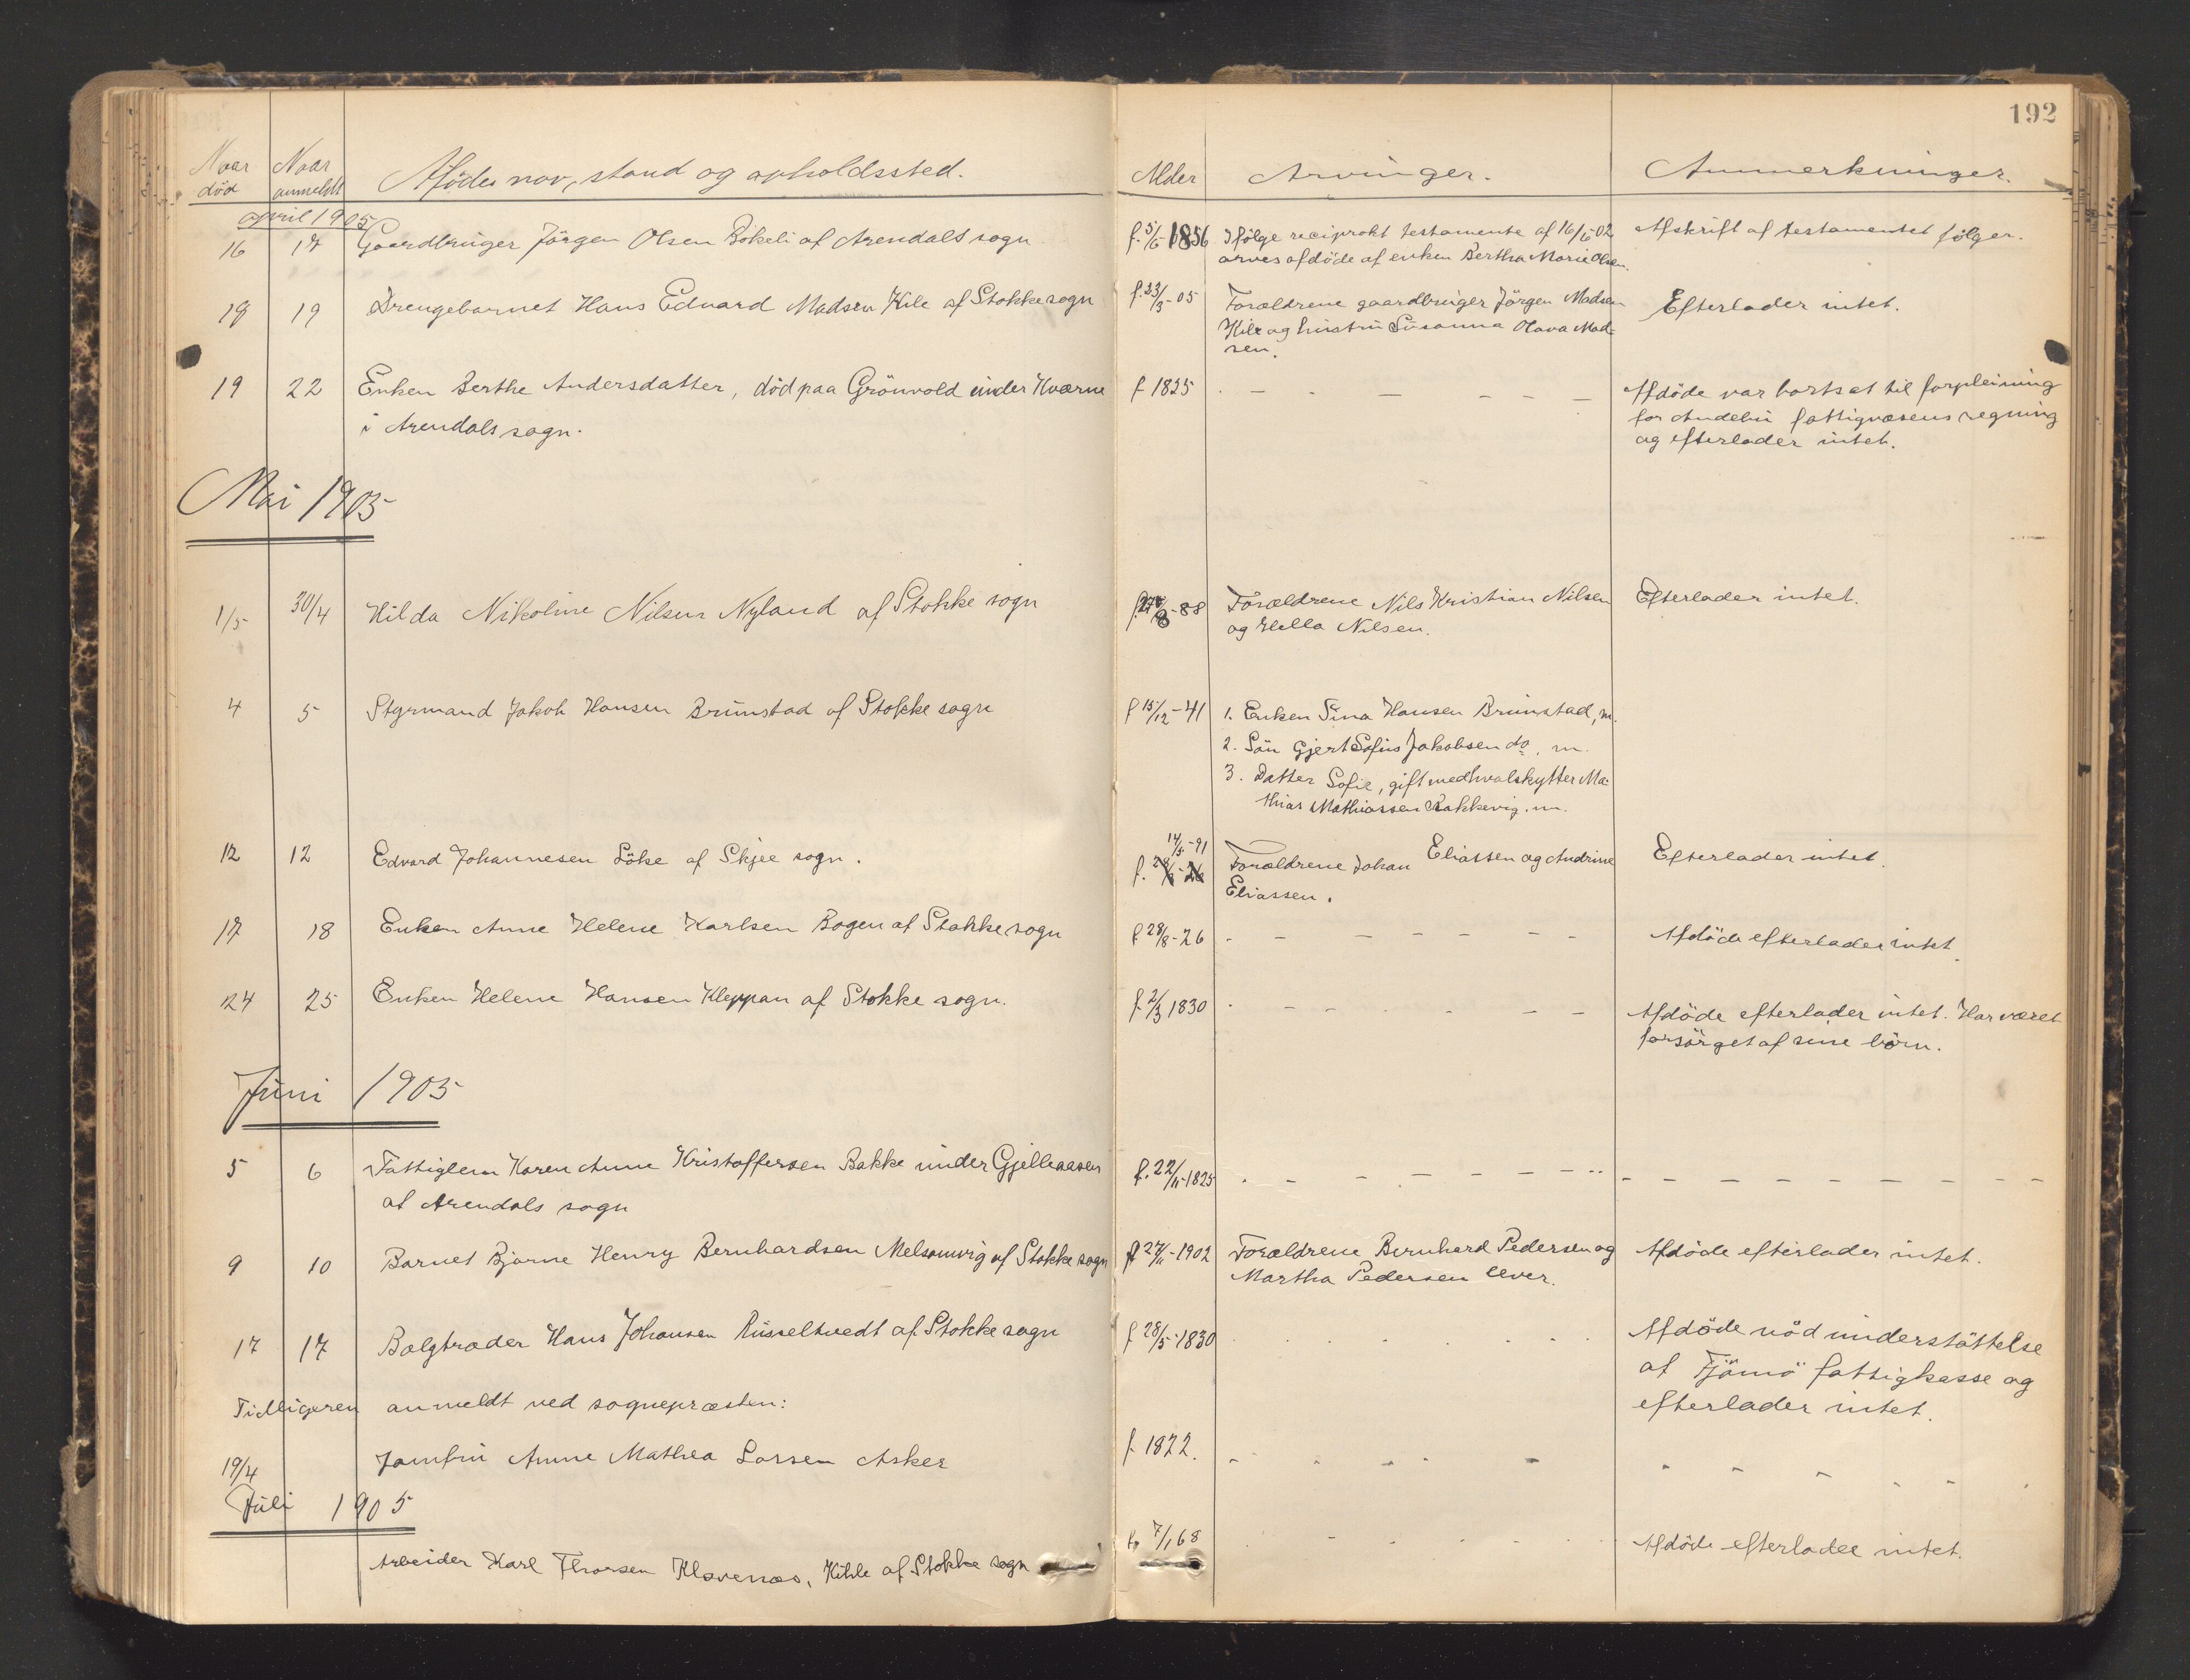 192
Naar død Naar anmeldt Afdødes navn, stand og opholdssted. Alder Arvinger. Anmerkninger.
April 1905
16 17 Gaardbruger Jörgen Olsen Bokeli af Arendals sogn f. 5/6 1856 Ifölge reciprokt testamente af 16/5 02 Afskrift af testamentet fölger.
arves afdöde af enken Bertha Marie Olsen.
19 19 Drengebarnet Hans Edvard Madsen Kile af Stokke sogn f. 23/3-05 Forældrene gaardbruger Jörgen Madsen Efterlader intet.
Kile og hustru Susanna Olava Mad-
sen.
19 22 Enken Berthe Andersdatter, död paa Grönvold under Hværne f 1825 Afdöde var bortsat til forpleining
i Arendals sogn. for Andebu fattigvæsens regning
og efterlader intet.
Mai 1905
1/5 30/4 Hilda Nikoline Nilsen Nyland af Stokke sogn f. 8-88 Forældrene Nils Kristian Nilsen Efterlader intet.
og Hella Nilsen.
4 5 Styrmand Jakob Hansen Brunstad af Stokke sogn f 15/12-41 1. Enken Sina Hansen Brunstad, m.
2. Sön Gjert Sofus Jakobsen do, m.
3. Datter Sofie, gift med hvalskytter Ma-
thias Mathiassen Rakkevig. m.
12 12 Edvard Johannesen Löke af Skjee sogn. f. 14/5-91 Forældrene Johan Eliassen og Andrine Efterlader intet.
Eliassen.
17 18 Enken Anne Helene Karlsen Bogen af Stokke sogn f 28/8-26 Afdöde efterlader intet.
24 25 Enken Helene Hansen Kleppan af Stokke sogn. f. 2/3 1830 Afdöde efterlader intet. Har været
forsörget af sine börn.
Juni 1905
5 6 Fattiglem Karen Anne Kristoffersen Bakke under Gjelleaasen f. 22/11-1825
af Arendals sogn
9 10 Barnet Bjarne Henry Bernhardsen Melsomvig af Stokke sogn f 27/11-1902 Forældrene Bernhard Pedersen og Afdöde efterlader intet.
Martha Pedersen lever.
17 17 Bælgtræder Hans Johansen Russeltvedt af Stokke sogn f 28/5-1830 Afdöde nöd understöttelse
af Tjömö fattigkasse og
efterlader intet.
Tidligere anmeldt ved sognepræsten:
19/4 Jomfru Anne Mathea Larsen Asker f. 1822.
Juli 1905
Arbeider Karl Thorsen Klavenæs, Kihle af Stokke sogn f. 7/1 68 Afdöde efterlader intet.